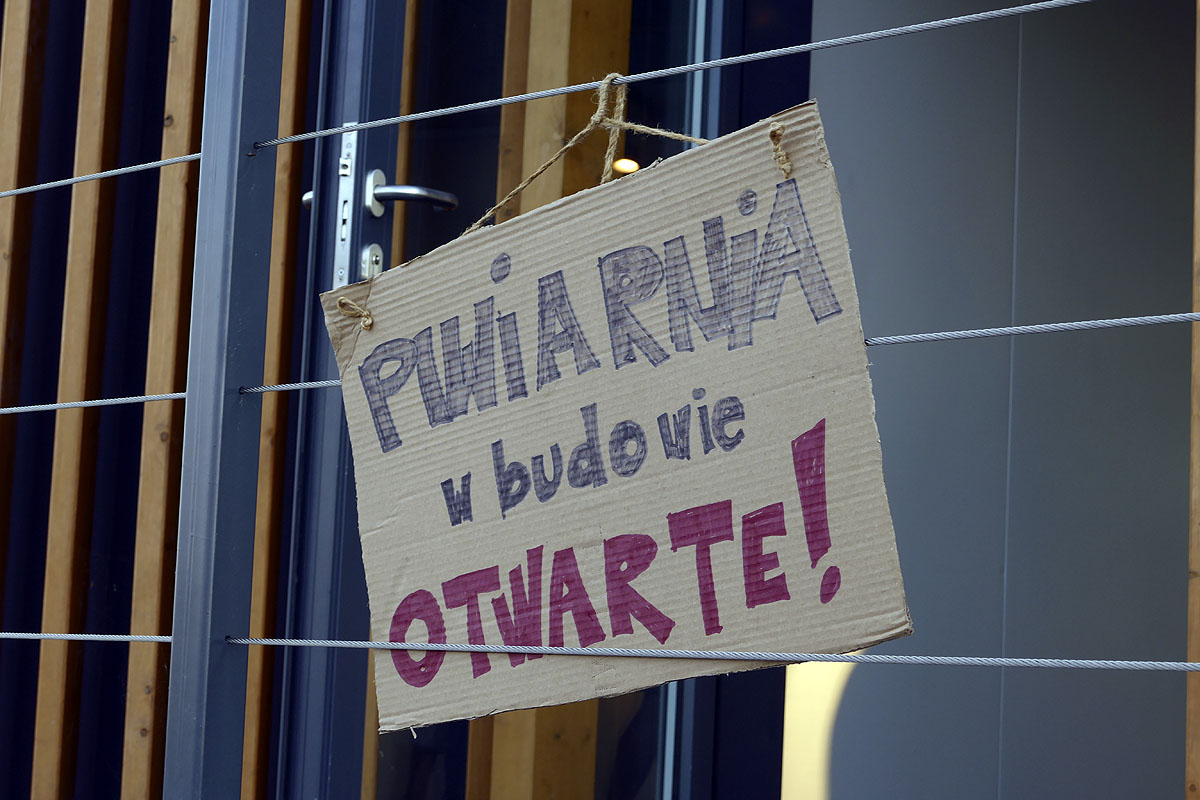 PWiARNiA
w budowie
OTWARTE!